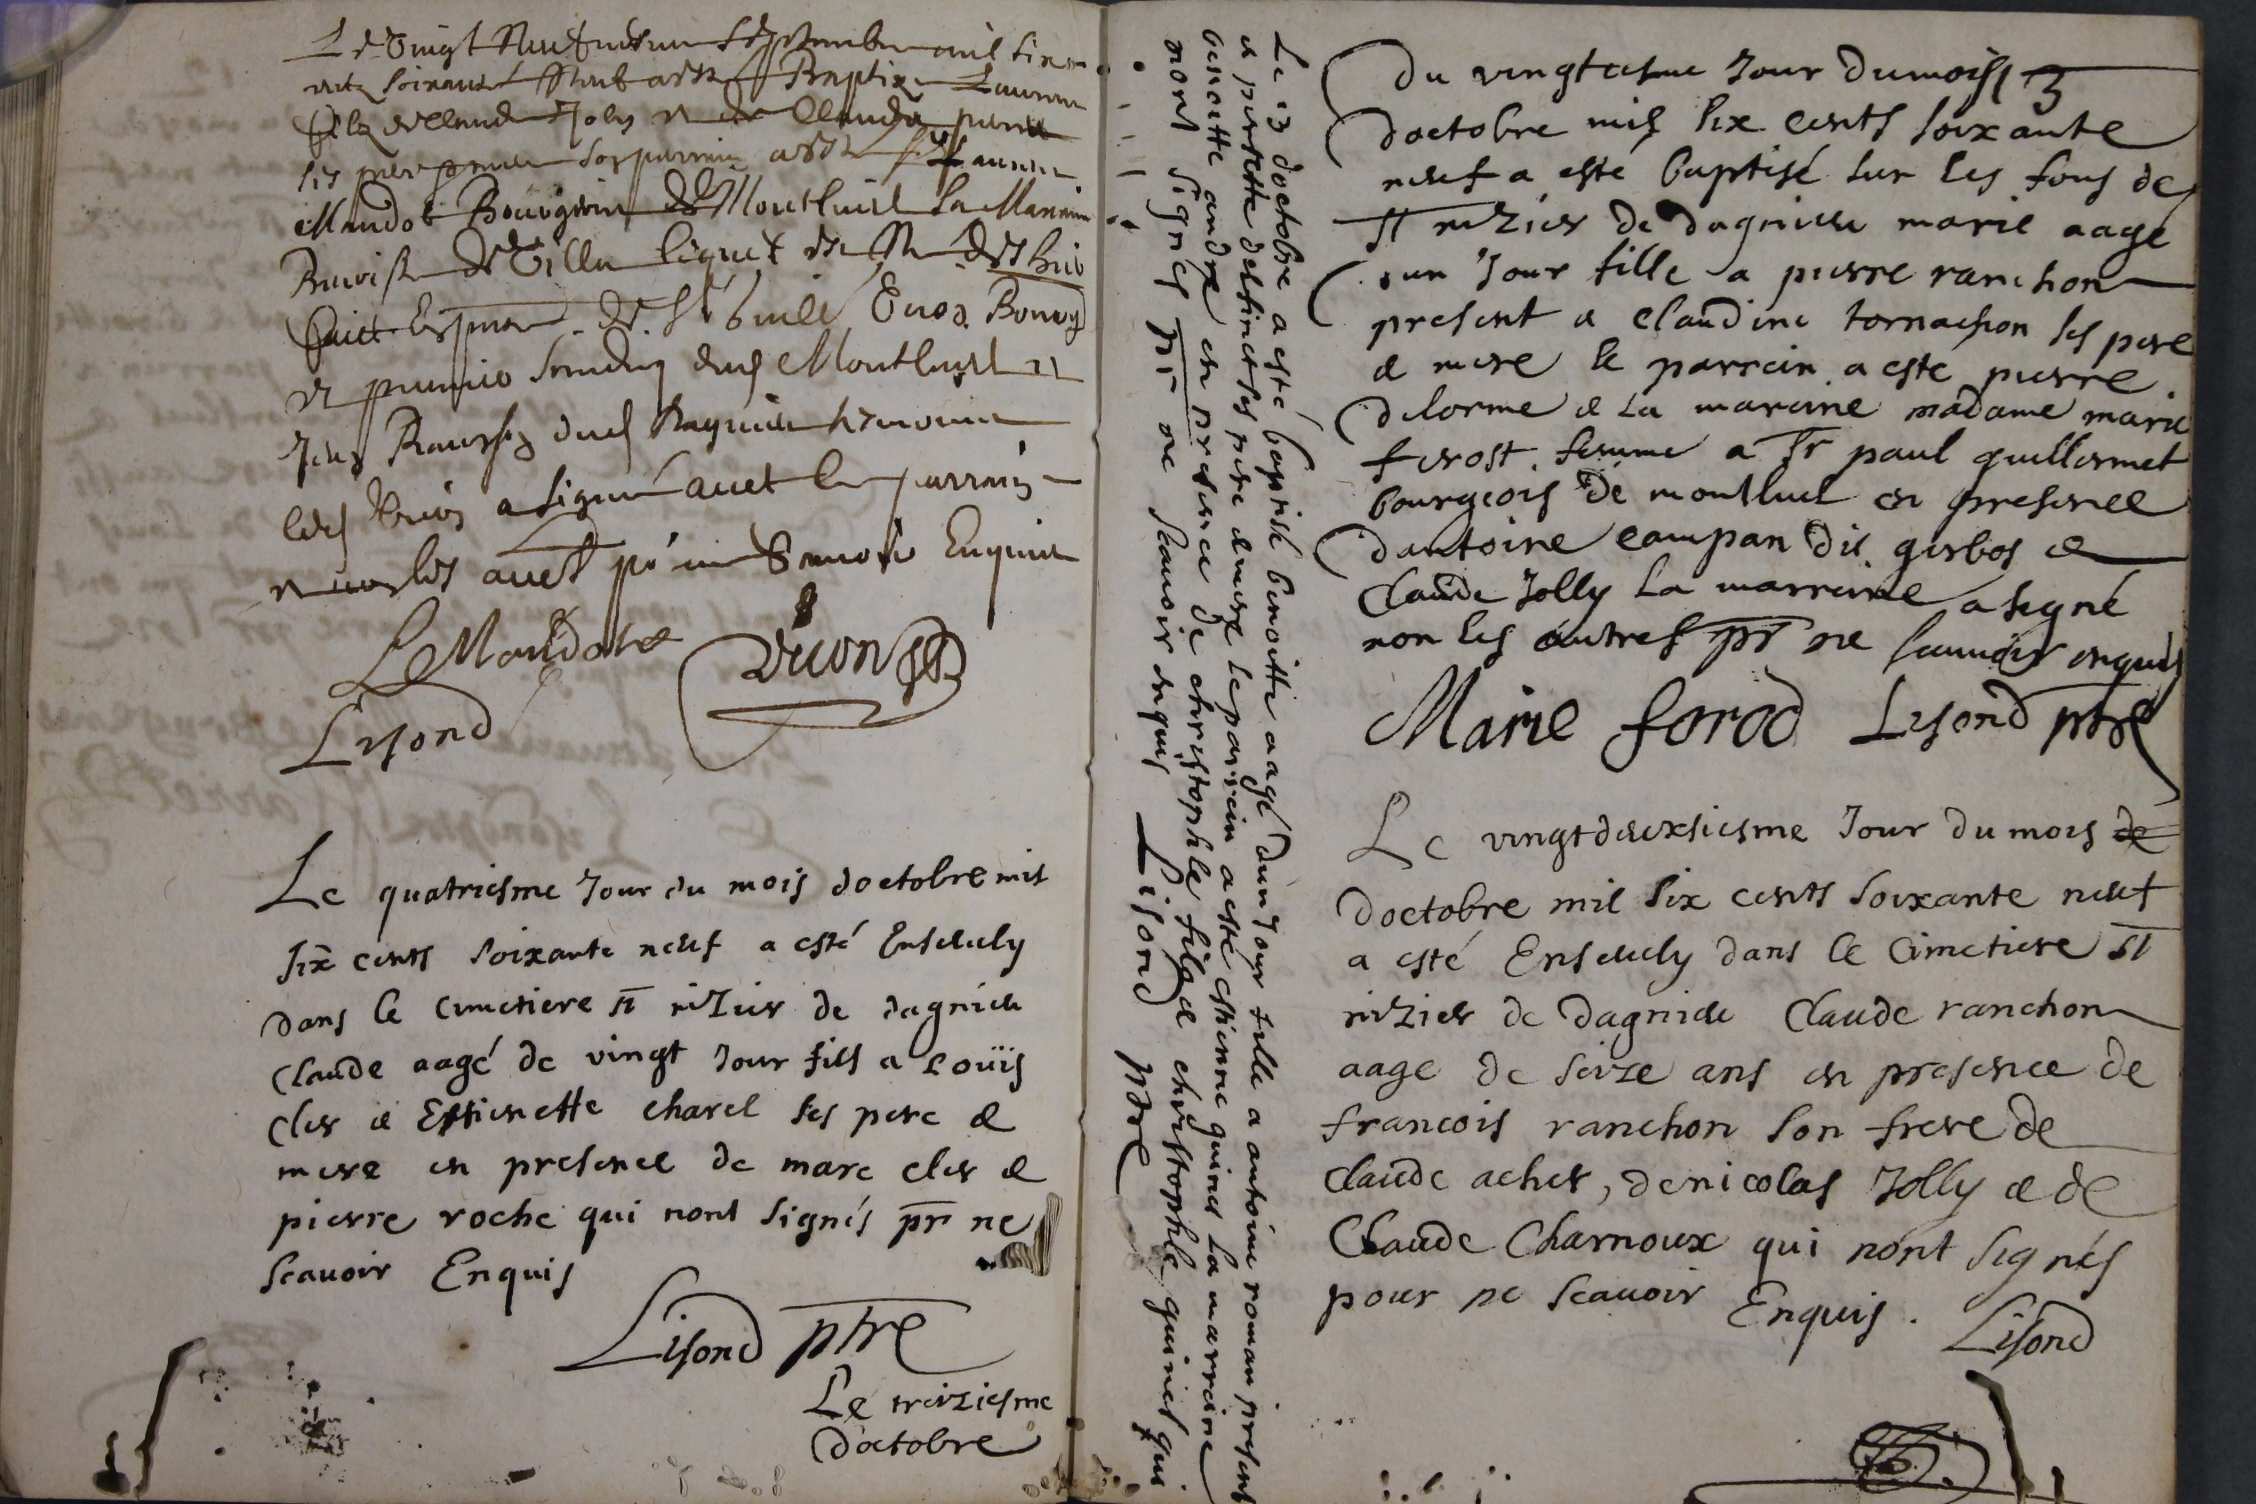 Le vingt neufviesme septembre mil six
centz soixante neuf a esté Baptizé Laurent
filz de Claude Joly et de Clauda
ses pere mere son parrain a esté Sr Laurent
Maudot Bourgeois de Montluel la Marraine
de Sr
et premier dud Montluel et
Jean dud
led a signé avec le parrain
et non les aues pr ne sçavoir Enquis
Le Maudot
Lisond
Le quatriesme Jour du mois doctobre mil
six cents soixante neuf a esté Enseuely
dans le cimetiere st nizier de dagnieu
Claude aagé de vingt Jour fils a Louïs
cler & Estienette charel ses pere &
mere en presence de marc cler &
pierre roche qui nont signés pr ne
scauoir Enquis
Lisond ptre
Le treiziesme
doctobre
Le 13 doctobre a esté baptisé benoitte aagé dun Jour fille a antoine roman present
& pierrette delfinet ses pere & mere le parrein a esté estienne guinet La marreine
benoitte andre en presence de christophle filz & christophle guinet qui
nont signés pr ne scauoir enquis Lisond ptre
Du vingtiesme Jour du mois
doctobre mil six cents soixante
neuf a esté baptisé sur les fons de
st nizier de dagnieu marie aagé
un Jour fille a pierre ranchon
present & claudine tornachon ses pere
& mere le parrein a esté pierre
delorme & La mareine madame marie
ferost femme a Sr paul guillermet
bourgeois de montluel en presence
dantoine campan dit gerbos &
Claude Jolly La marreine a signé
non les autres pr ne scauoir enquis
Marie forod Lisond ptre
Le vingtdeuxsiesme Jour du mois de
doctobre mil six cents soixante neuf
a esté Enseuely dans le Cimetiere st
nizier de Dagnieu Claude ranchon
aage de seize ans en presence de
francois ranchon son frere de
Claude acher, de nicolas Jolly & de
Claude Charnoux qui nont signés
pour ne scauoir Enquis.
Lisond